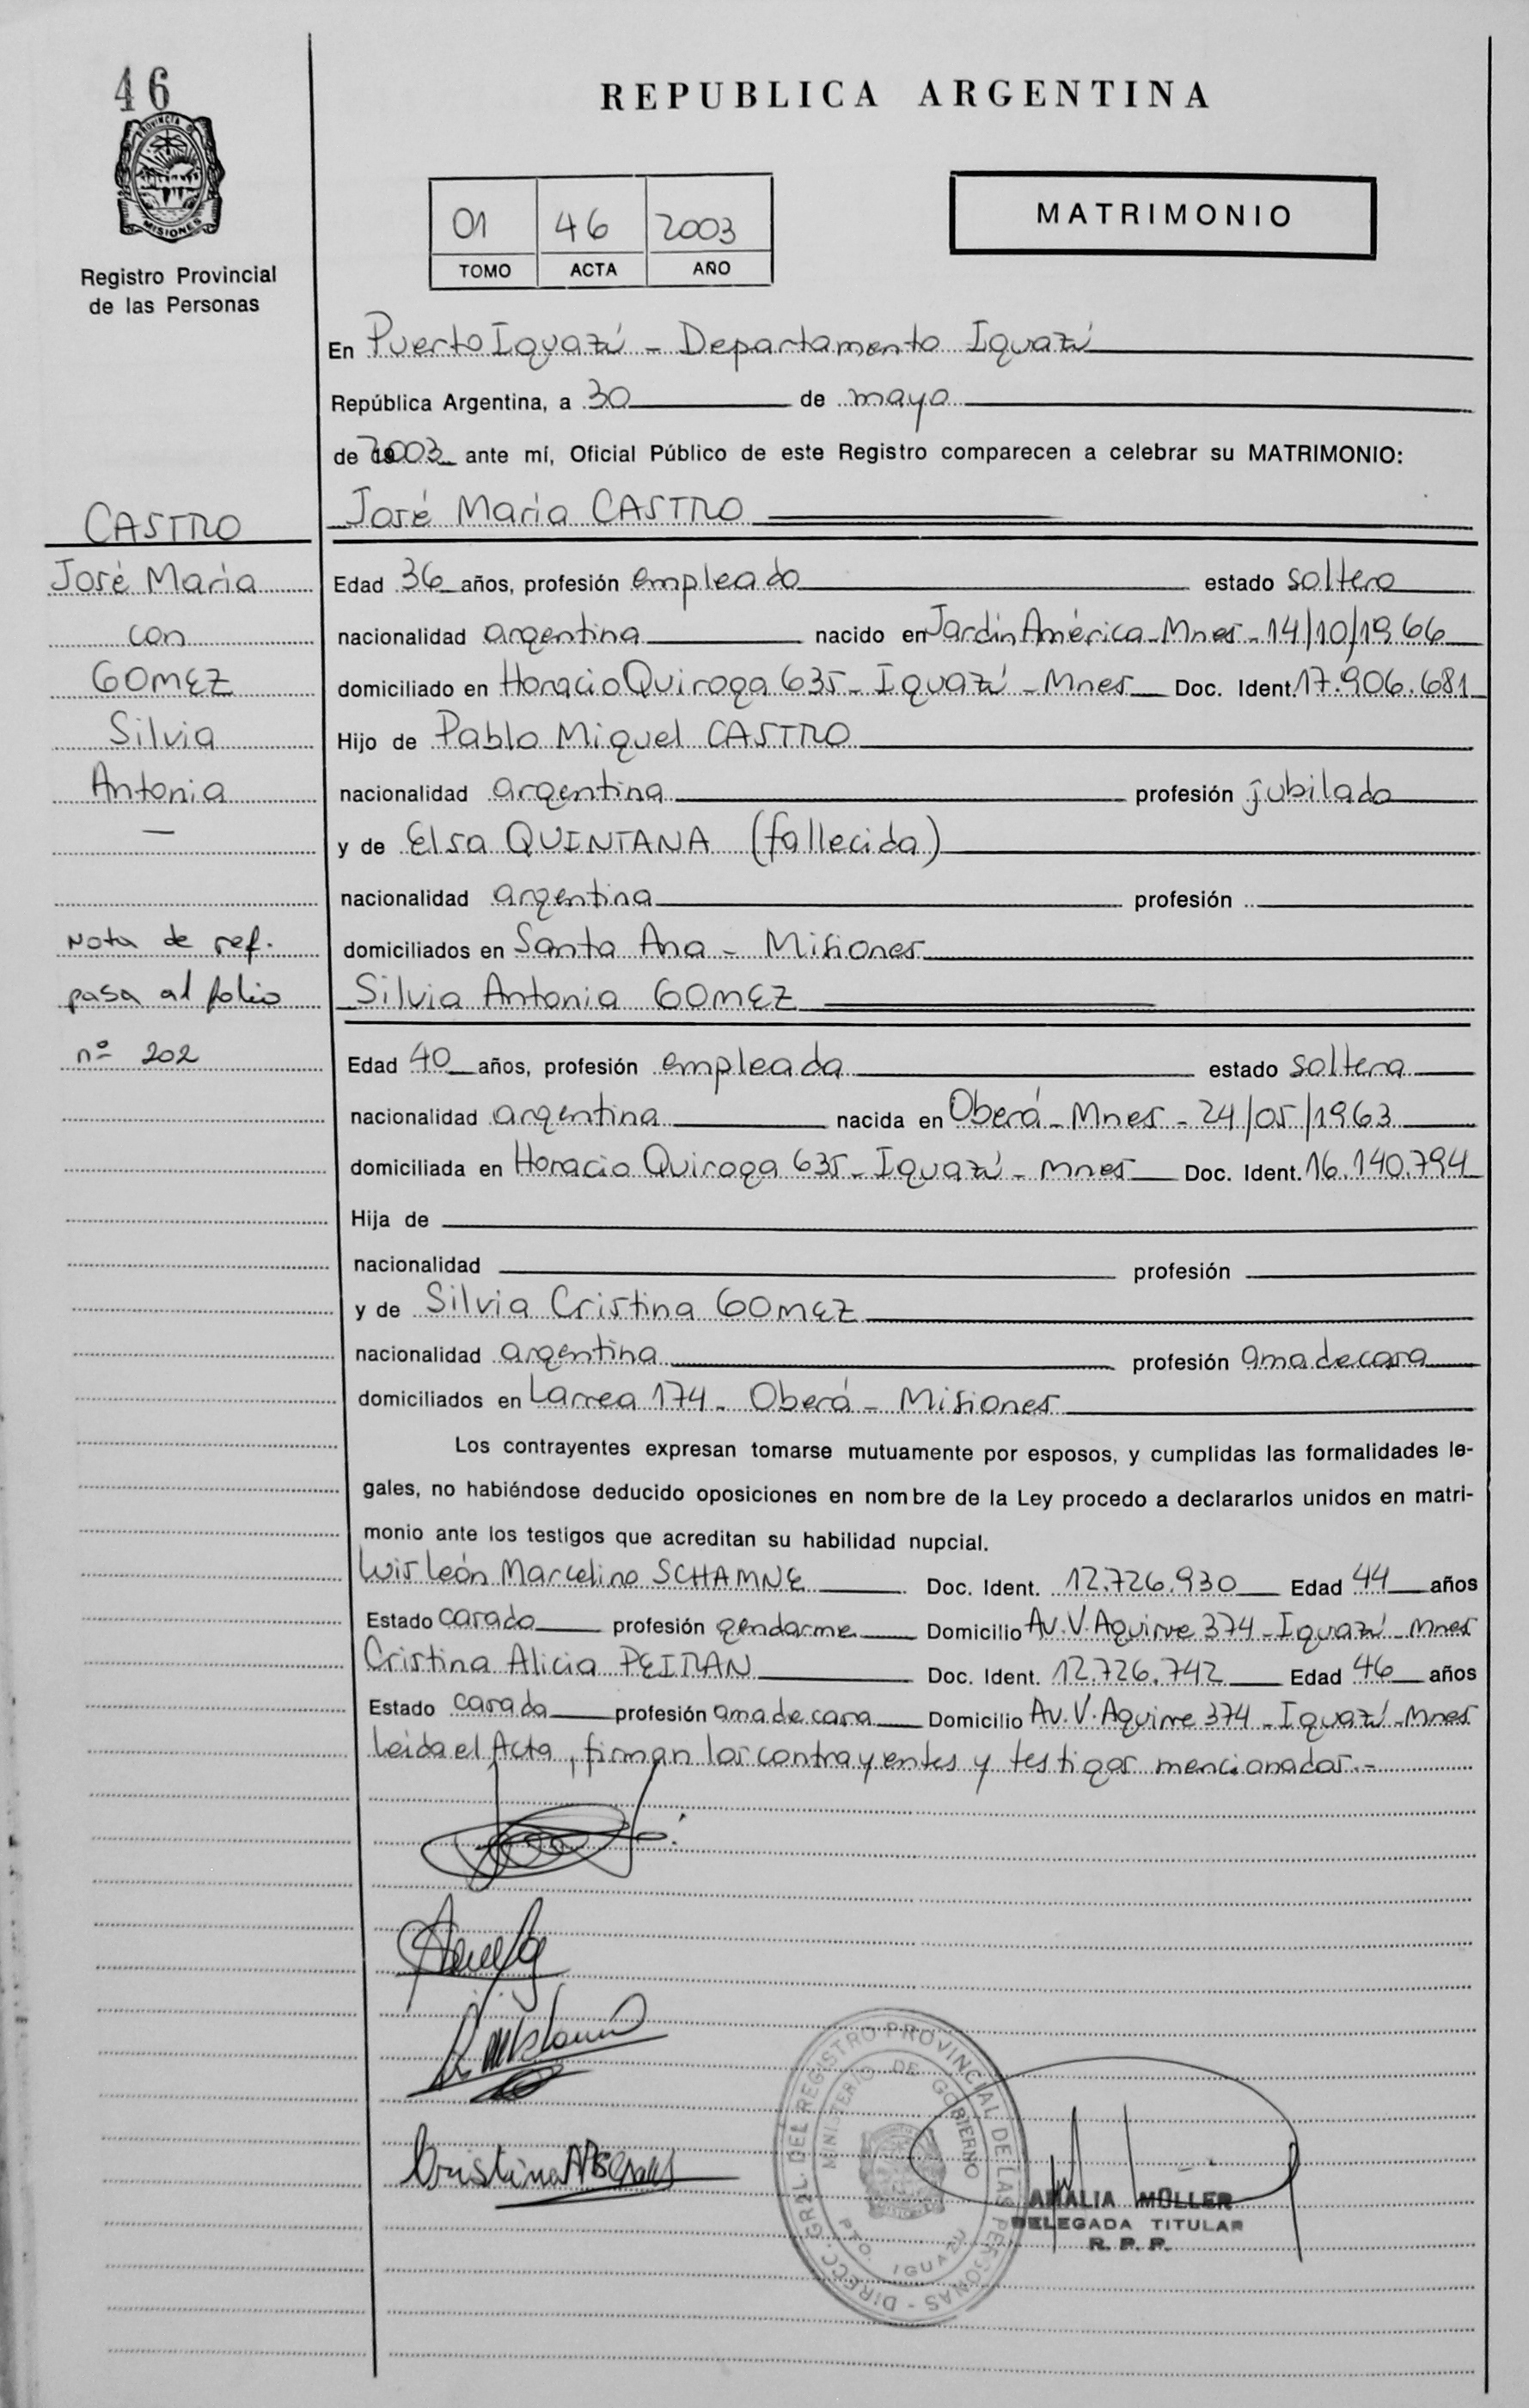 46
PROVINCIA DE
MISIONES
Registro Provincial
de las Personas
REPUBLICA ARGENTINA
01 46 2003
TOMO ACTA AÑO
MATRIMONIO
En Puerto Iguazú - Departamento Iguazú
República Argentina, a 30 de mayo
de 2003 ante mí, Oficial Público de este Registro comparecen a celebrar su MATRIMONIO:
José Maria CASTRO
CASTRO
José Maria
con
GOMEZ
Silvia
Antonia
—
Nota de ref.
pasa al folio
nº 202
Edad 36 años, profesión empleado estado soltero
nacionalidad argentina nacido en Jardín América - Mnes - 14/10/1966
domiciliado en Horacio Quiroga 635 - Iguazú - Mnes Doc. Ident. 17.906.681
Hijo de Pablo Miguel CASTRO
nacionalidad argentina profesión jubilado
y de Elsa QUINTANA (fallecida)
nacionalidad argentina profesión
domiciliados en Santa Ana - Misiones
Silvia Antonia GOMEZ
Edad 40 años, profesión empleada estado soltera
nacionalidad argentina nacida en Oberá - Mnes - 24/05/1963
domiciliada en Horacio Quiroga 635 - Iguazú - Mnes Doc. Ident. 16.140.794
Hija de
nacionalidad profesión
y de Silvia Cristina GOMEZ
nacionalidad argentina profesión ama de casa
domiciliados en Larrea 174 - Oberá - Misiones
Los contrayentes expresan tomarse mutuamente por esposos, y cumplidas las formalidades le-
gales, no habiéndose deducido oposiciones en nombre de la Ley procedo a declararlos unidos en matri-
monio ante los testigos que acreditan su habilidad nupcial.
Luis León Marcelino SCHAMNE Doc. Ident. 12.726.930 Edad 44 años
Estado casado profesión gendarme Domicilio Av. V. Aguirre 374 - Iguazú - Mnes
Cristina Alicia PEITRAN Doc. Ident. 12.726.742 Edad 46 años
Estado casada profesión ama de casa Domicilio Av. V. Aguirre 374 - Iguazú - Mnes
Leída el Acta, firman los contrayentes y testigos mencionados.-
Cristina
DIRECC. GRAL. DEL REGISTRO PROVINCIAL DE LAS PERSONAS -
MINISTERIO DE GOBIERNO
PTO. IGUAZU
AMALIA MÜLLER
DELEGADA TITULAR
R. P. P.